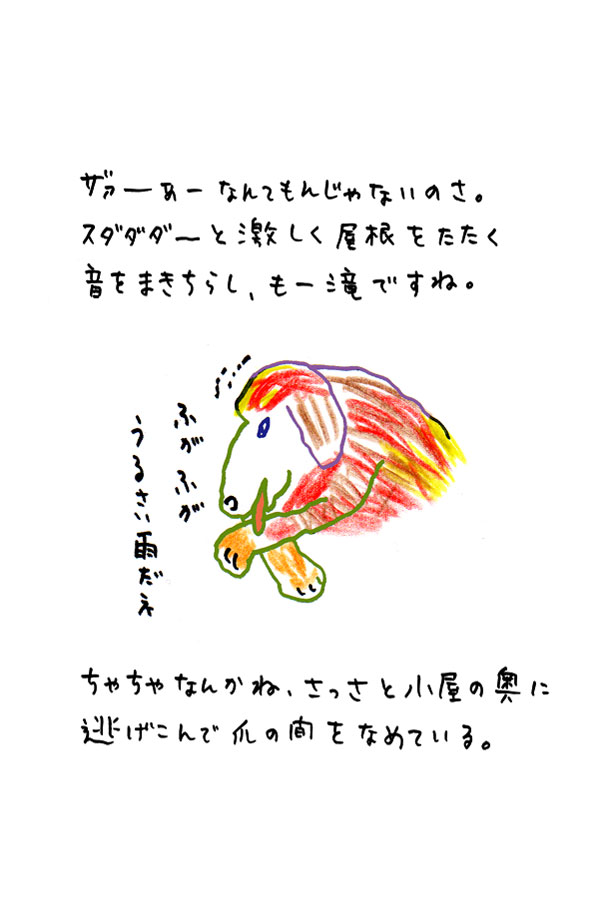 ザァーぁーなんてもんじゃないのさ。
スダダダーと激しく屋根をたたく
音をまきちらし、もー滝ですね。
ふがふが
うるさい雨だえ
ちゃちゃなんかね、さっさと小屋の奥に
逃げこんで爪の間をなめている。